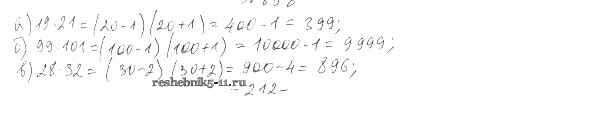 а) 19·21=(20-1)(20+1)=400-1=399;
б) 99·101=(100-1)(100+1)=10000-1=9999;
в) 28·32=(30-2)(30+2)=900-4=896;
reshebnik5-11.ru
-212-